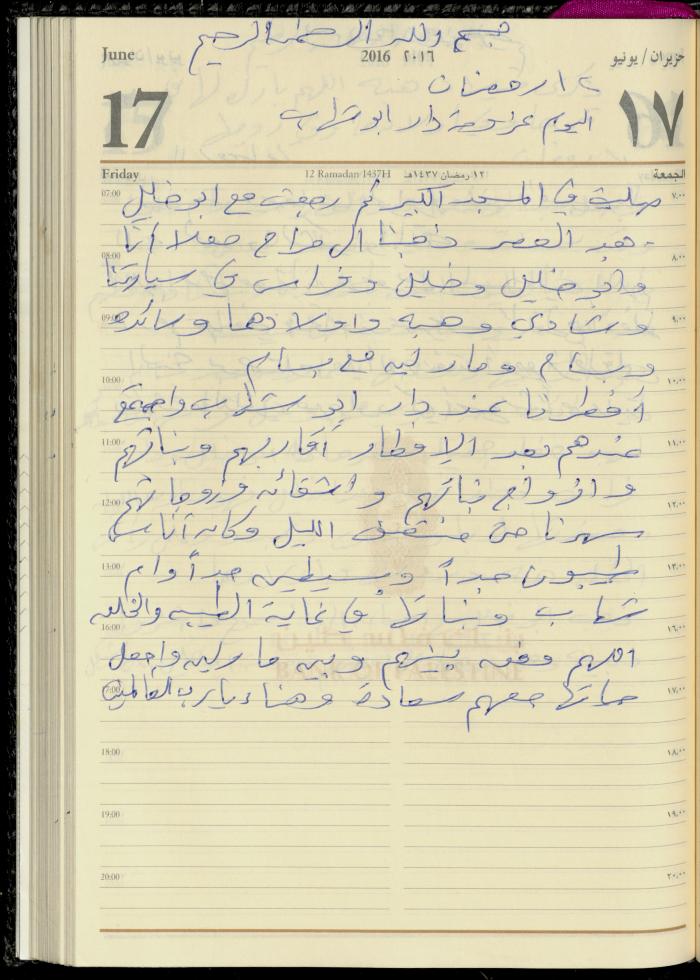 بسم الله الرحمن الرحيم
June 2016 ٢٠١٦ حزيران / يونيو
١٢ رمضان
17 ١٧
اليوم عزومة دار ابو شهاب
Friday 12 Ramadan 1437H ١٢ رمضان ١٤٣٧هـ الجمعة
07:00 ٧:٠٠
صليت في المسجد الكبير ثم رجعت مع ابو خليل
بعد العصر ذهبنا الى انا
08:00 ٨:٠٠
وابو خليل وخليل وفراس في سيارتنا
09:00 ٩:٠٠
وشادي وهبه واولادها وسائده
وبسام ومارليه مع بسام
10:00 ١٠:٠٠
أفطرنا عند دار ابو شهاب واجتمع
11:00 ١١:٠٠
عندهم بعد الإفطار أقاربهم وبناتهم
وازواج بناتهم واشقائه وزوجاتهم
12:00 ١٢:٠٠
سهرنا حتى منتصف الليل وكانو أناس
13:00 ١٣:٠٠
طيبون جداً وبسيطين جداً وام
شهاب وبناتها في غاية الطيبه والخلق
16:00 ١٦:٠٠
اللهم وفق بينهم وبين مارليه واجعل
BANK OF PALESTINE
17:00 ١٧:٠٠
حياتها معهم سعادة وهناء يا رب العالمين
18:00 ١٨:٠٠
19:00 ١٩:٠٠
20:00 ٢٠:٠٠